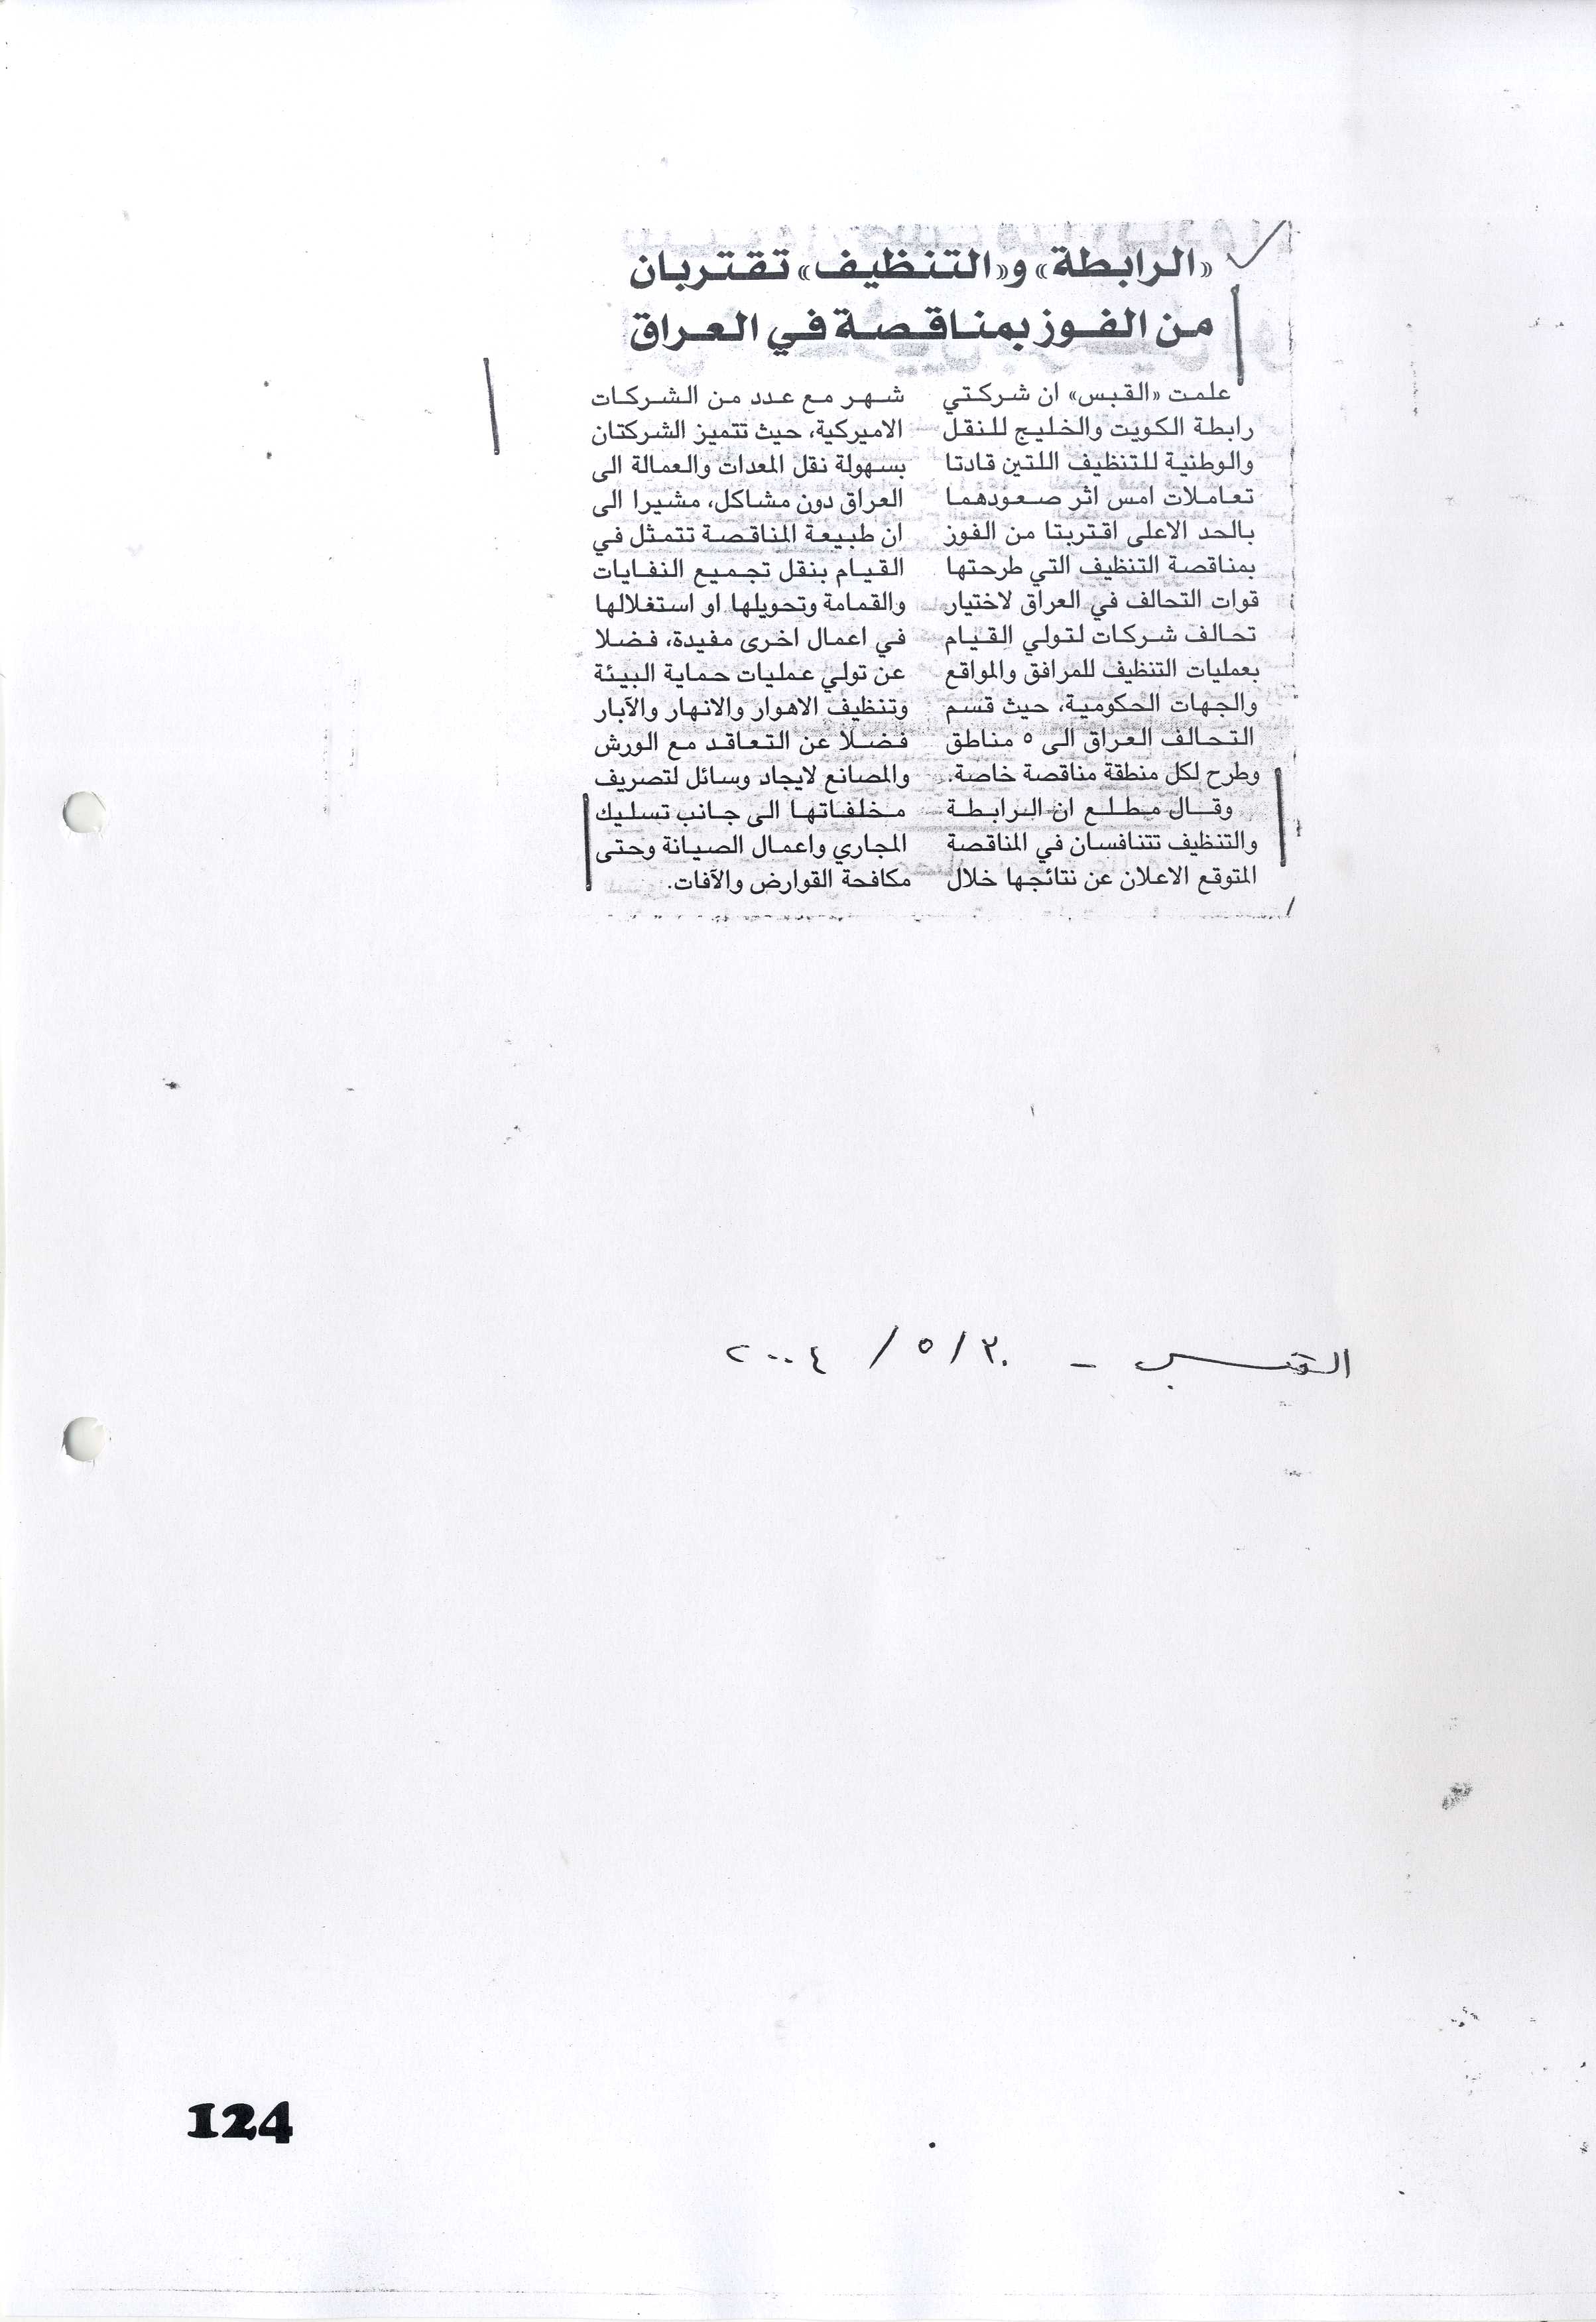 «الرابطة» و«التنظيف» تقتربان
من الفوز بمناقصة في العراق
علمت «القبس» ان شركتي
رابطة الكويت والخليج للنقل
والوطنية للتنظيف اللتين قادتا
تعاملات امس اثر صعودهما
بالحد الاعلى اقتربتا من الفوز
بمناقصة التنظيف التي طرحتها
قوات التحالف في العراق لاختيار
تحالف شركات لتولي القيام
بعمليات التنظيف للمرافق والمواقع
والجهات الحكومية، حيث قسم
التحالف العراق الى ٥ مناطق
وطرح لكل منطقة مناقصة خاصة.
وقال مطلع ان الرابطة
والتنظيف تتنافسان في المناقصة
المتوقع الاعلان عن نتائجها خلال
شهر مع عدد من الشركات
الاميركية، حيث تتميز الشركتان
بسهولة نقل المعدات والعمالة الى
العراق دون مشاكل، مشيرا الى
ان طبيعة المناقصة تتمثل في
القيام بنقل تجميع النفايات
والقمامة وتحويلها او استغلالها
في اعمال اخرى مفيدة، فضلا
عن تولي عمليات حماية البيئة
وتنظيف الاهوار والانهار والآبار
فضلا عن التعاقد مع الورش
والمصانع لايجاد وسائل لتصريف
مخلفاتها الى جانب تسليك
المجاري واعمال الصيانة وحتى
مكافحة القوارض والآفات.
القبس - ٣٠/ ٥ / ٢٠٠٤
124